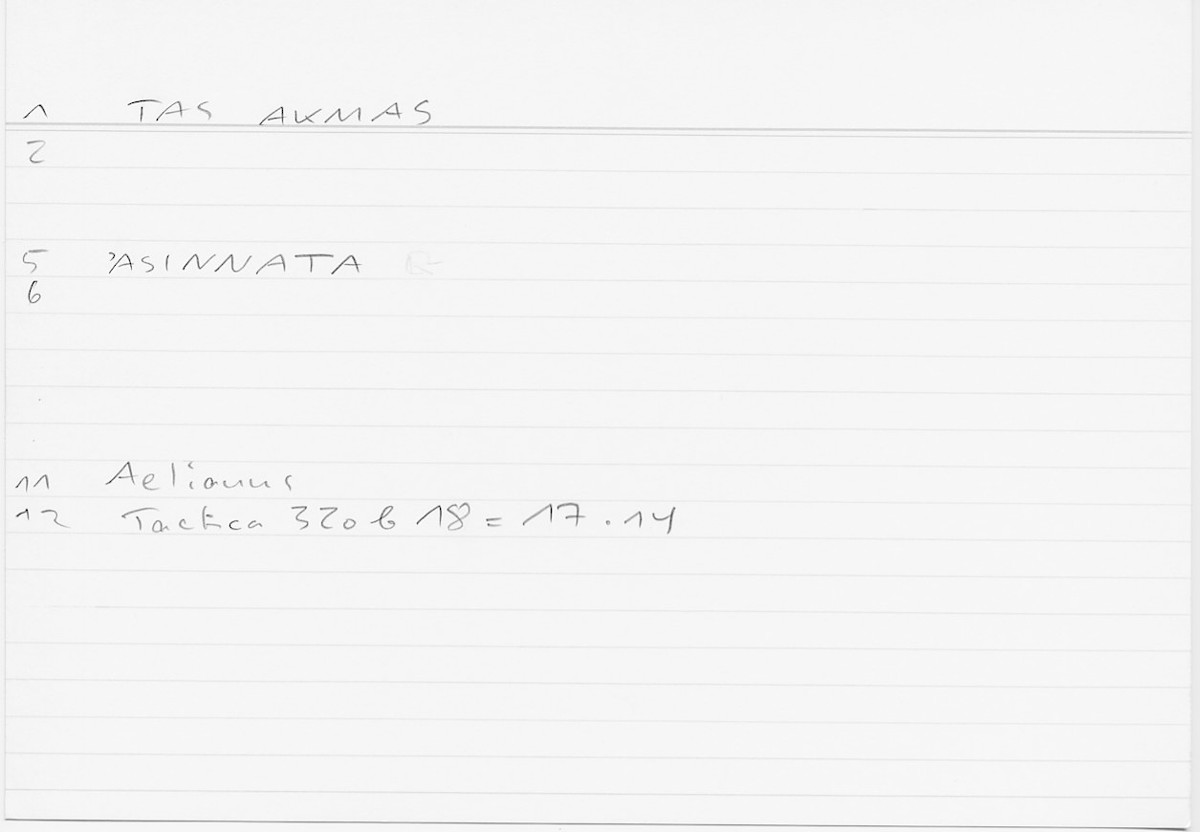 1 TAS AKMAS
2
5 ʾASINNATA
6
11 Aelianus
12 Tactica 320 b 18 = 17.14